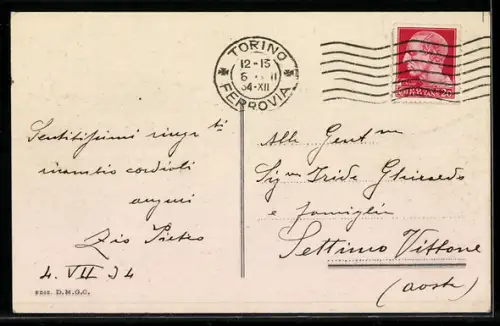 TORINO
12-13
6 · · II
34-XII
FERROVIA
Sentitissimi ringr.ti
ricambio cordiali
auguri
Zio Pietro
4. VII 34
EDIZ. D.N.G.C.
Alla Gent.ma
Sig.na Iride Ghirardo
e famiglia
Settimo Vittone
(Aosta)